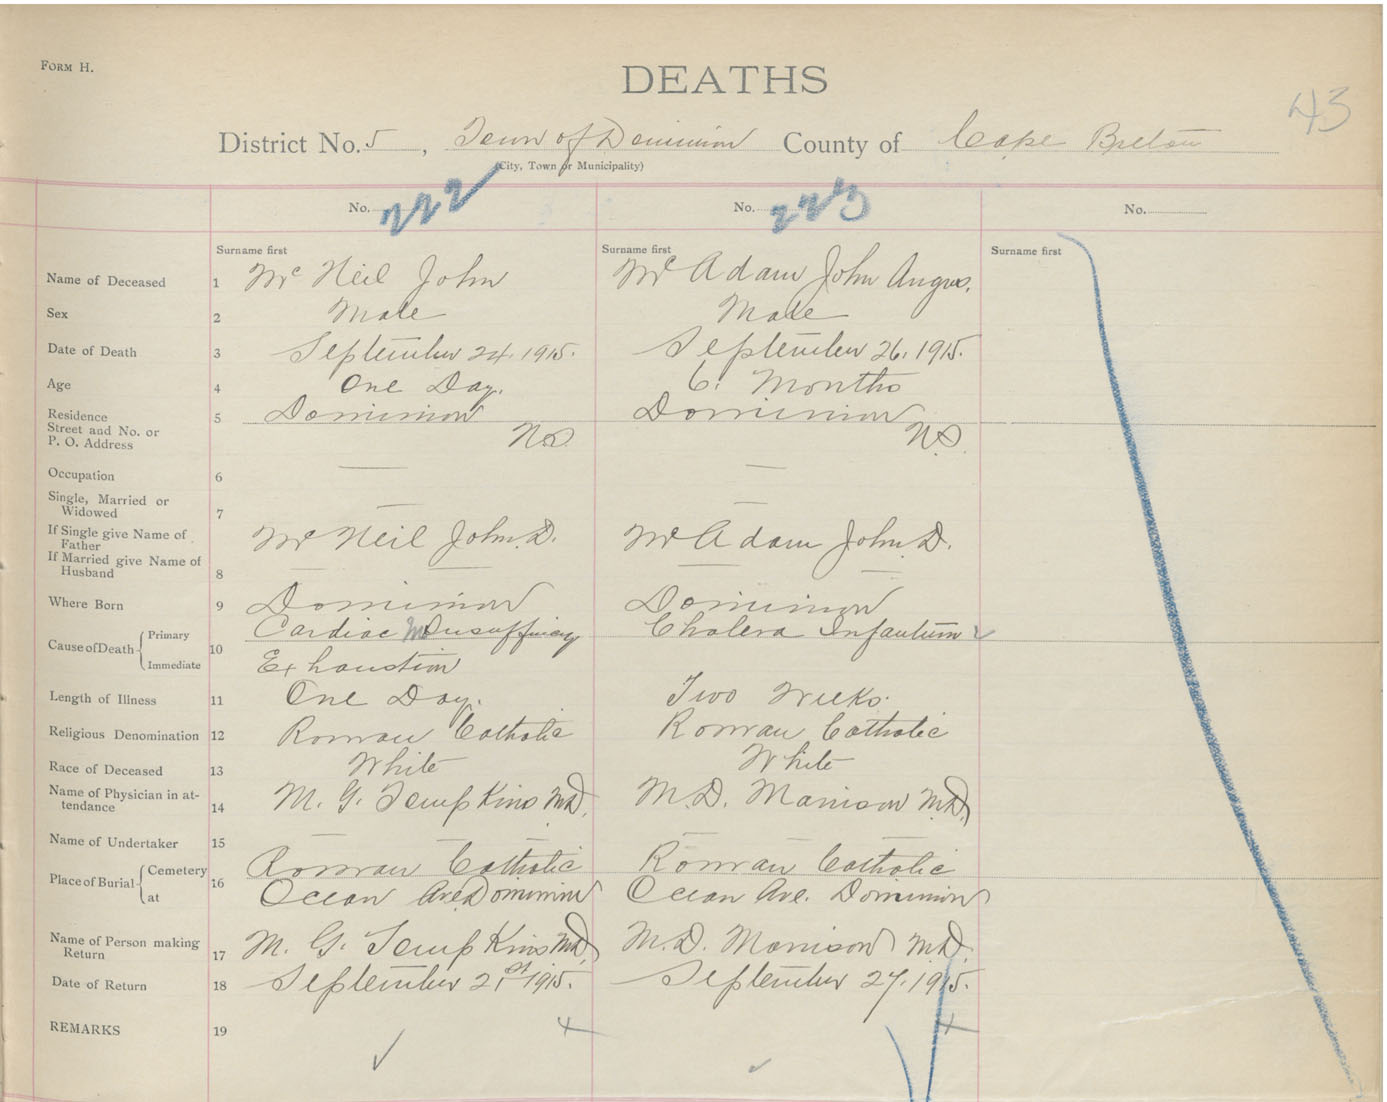 FORM H.
DEATHS
43
District No. 5, Town of Dominion County of Cape Breton
(City, Town or Municipality)
No. 222 No. 223 No.
Surname first Surname first Surname first
Name of Deceased 1 Mc Neil John Mc Adam John Angus.
Sex 2 Male Male
Date of Death 3 September 24. 1915. September 26. 1915.
Age 4 One Day. 6. Months
Residence 5 Dominion Dominion
Street and No. or
P. O. Address N.S. N.S.
Occupation 6 — —
Single, Married or
Widowed 7 — —
If Single give Name of
Father Mc Neil John D. Mc Adam John D.
If Married give Name of
Husband 8 — — — —
Where Born 9 Dominion Dominion
Cause of Death Primary 10 Cardiac Insufficiency Cholera Infantum
Immediate Exhaustion
Length of Illness 11 One Day. Two Weeks.
Religious Denomination 12 Roman Catholic Roman Catholic
Race of Deceased 13 White White
Name of Physician in at-
tendance 14 M. G. Tompkins M.D. M.D. Morrison M.D.
Name of Undertaker 15 — — — —
Place of Burial Cemetery 16 Roman Catholic Roman Catholic
at Ocean Ave. Dominion Ocean Ave. Dominion
Name of Person making
Return 17 M. G. Tompkins M.D. M.D. Morrison M.D.
Date of Return 18 September 21st 1915. September 27. 1915.
REMARKS 19